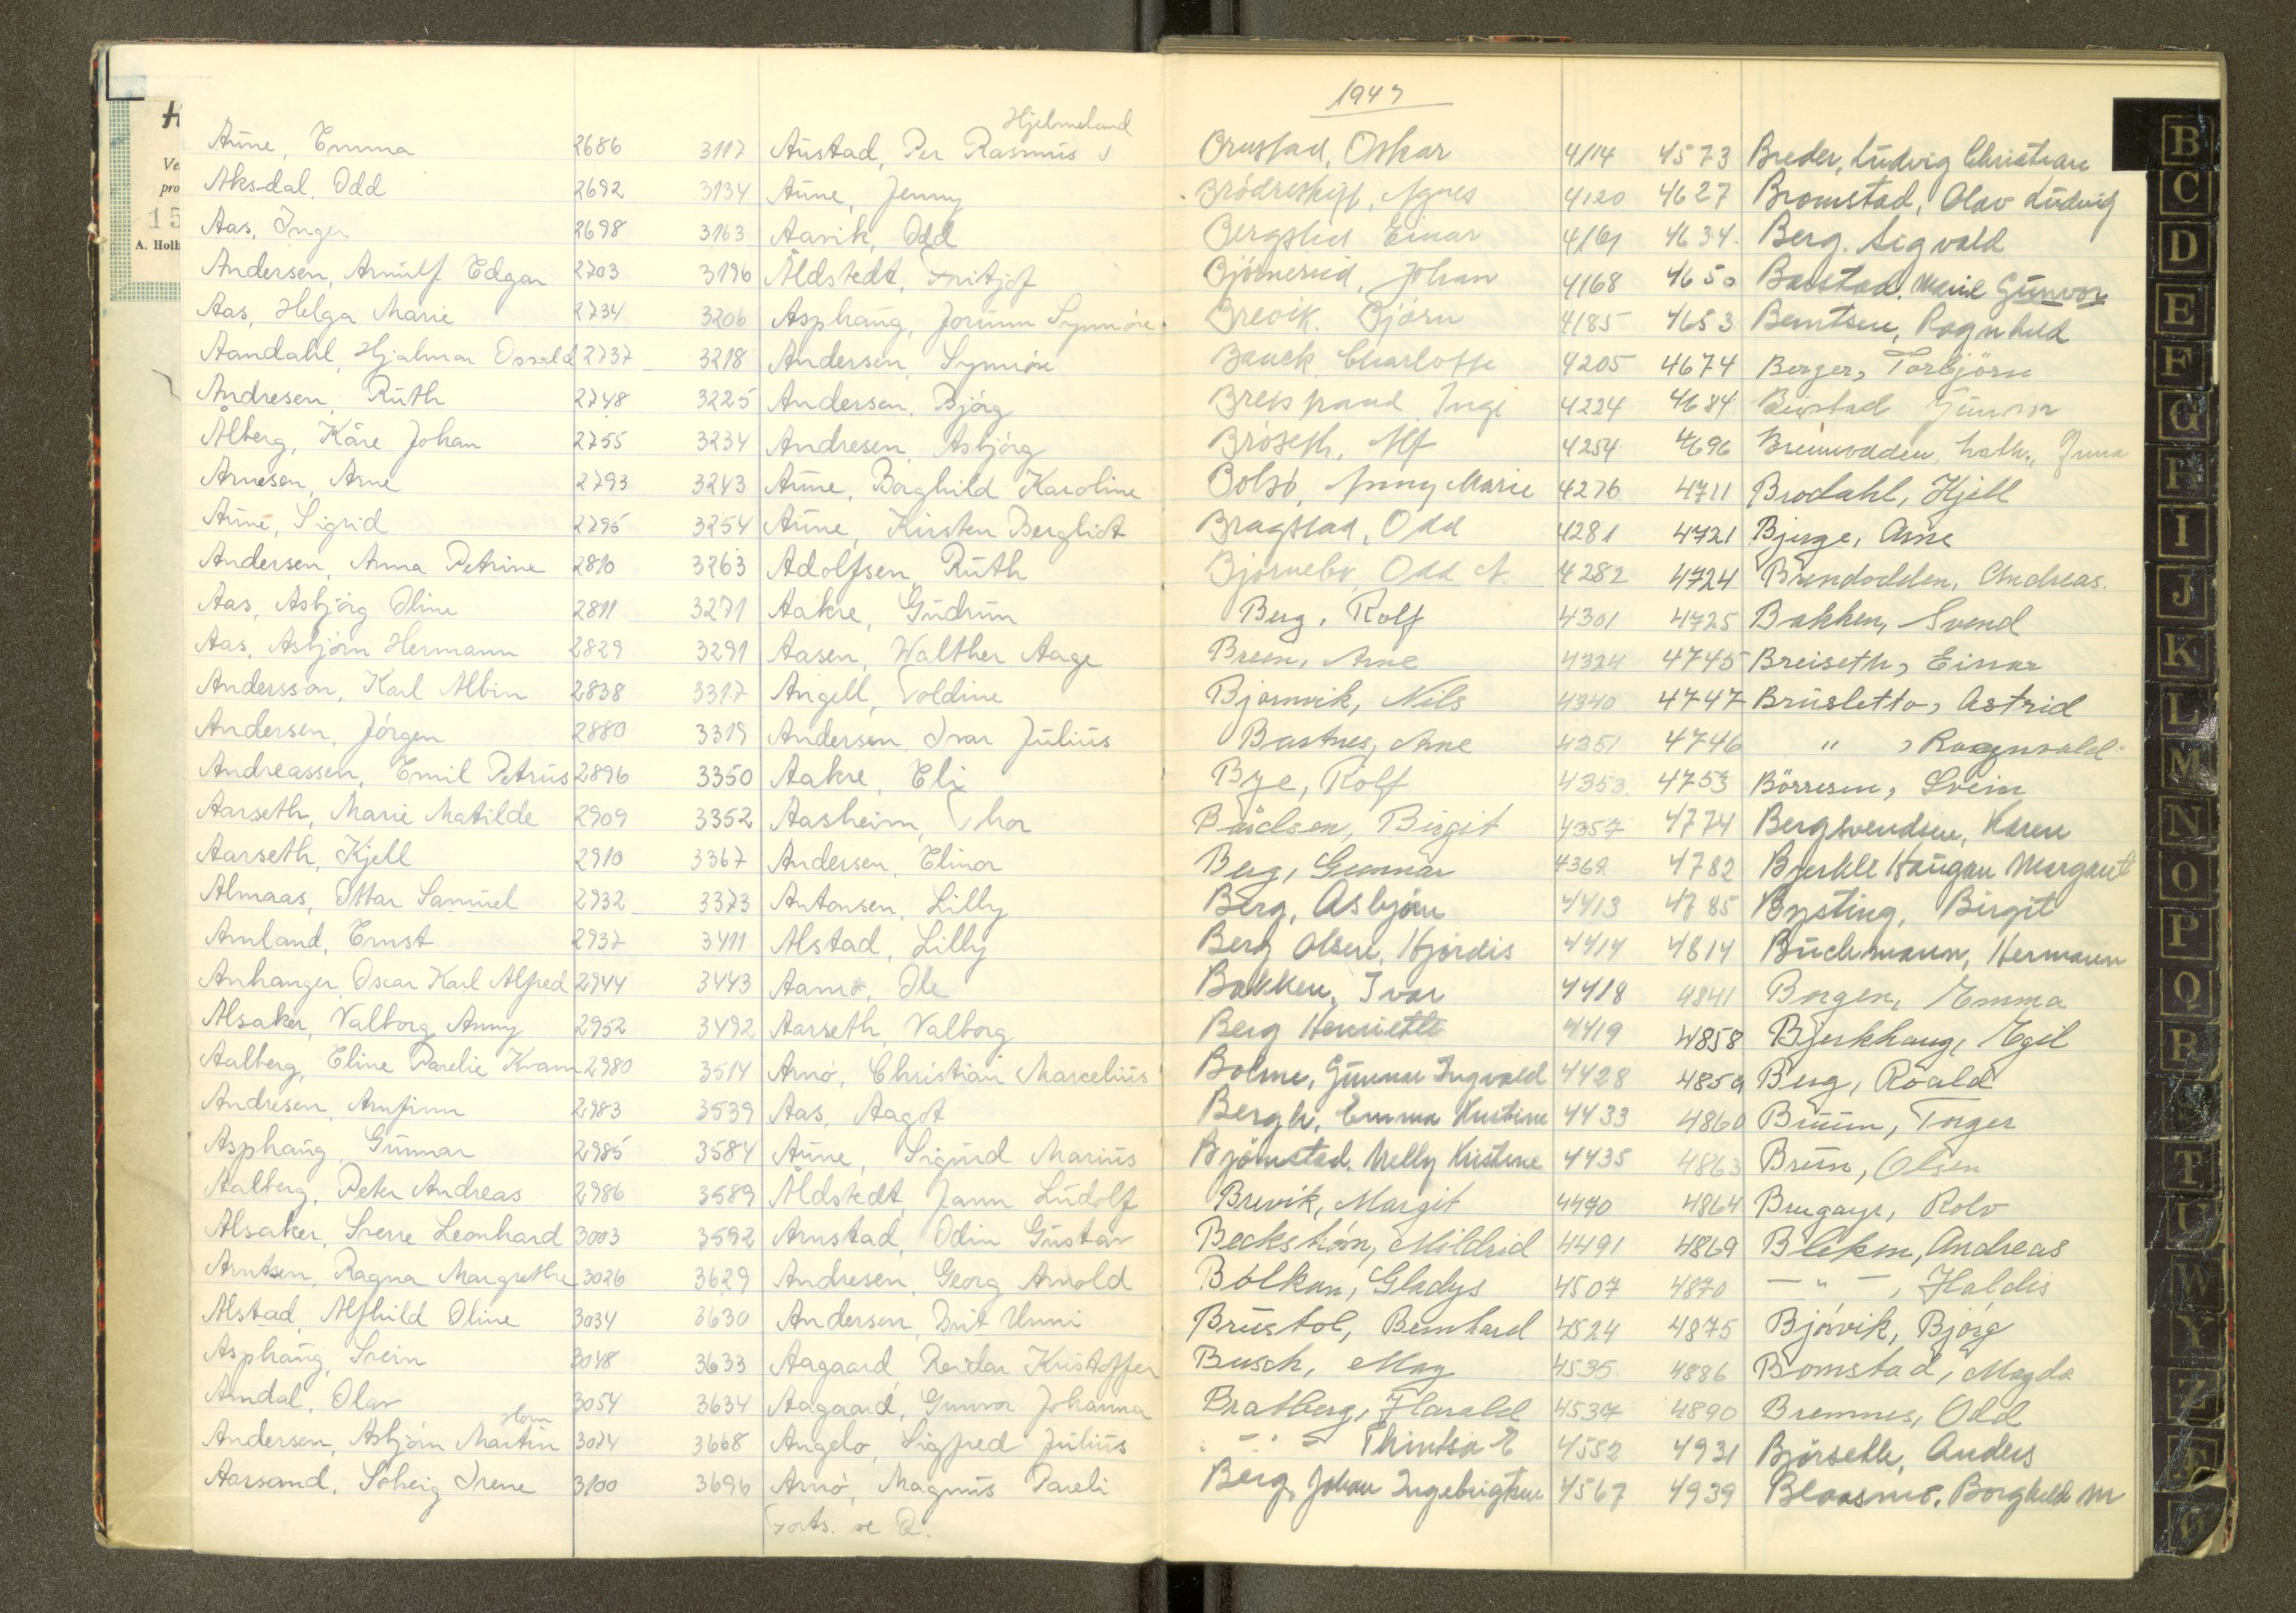 Aune, Emma 2686
Aksdal, Odd 2692
Aas, Inger 2698
Andersen, Arnulf Edgar 2703
Aas, Helga Marie 2734
Aandahl, Hjalmar Osvald 2737
Andresen, Ruth 2748
Ålberg, Kåre Johan 2755
Arnesen, Arne 2793
Aune, Sigrid 2795
Andersen, Anna Petrine 2810
Aas, Asbjörg Oline 2811
Aas, Asbjörn Hermann 2829
Andersson, Karl Albin 2838
Andersen, Jörgen 2880
Andreassen, Emil Petrus 2896
Aarseth, Marie Matilde 2909
Aarseth, Kjell 2910
Almaas, Ottar Samuel 2932
Amland, Ernst 2937
Anhanger, Oscar Karl Alfred 2944
Alsaker, Valborg Anny 2952
Aalberg, Eline Parelie Kvam 2980
Andresen, Arnfinn 2983
Asphaug, Gunnar 2985
Aalberg, Peter Andreas 2986
Alsaker, Sverre Leonhard 3003
Arntsen, Ragna Margrethe 3026
Alstad, Alfhild Oline 3034
Asphaug, Svein 3048
Arndal, Olav 3054
Andersen, Asbjörn Martin 3074
Aarsand, Solveig Irene 3100
Hjelmeland
3117 Austad, Per Rasmus
3134 Aune, Jenny
3163 Aavik, Odd
3196 Åldstedt, Fritjof
3206 Asphaug, Jorunn Synnöve
3218 Andersen, Synnöve
3225 Andersen, Bjórg
3234 Andresen, Asbjórg
3243 Aune, Borghild Karoline
3254 Aune, Kirsten Bergliot
3263 Adolfsen, Ruth
3271 Aakre, Gudrun
3291 Aasen, Walther Aage
3317 Angell, Voldine
3319 Andersen, Ivar Julius
3350 Aakre, Eli
3352 Aasheim, Thor
3367 Andersen, Elinor
3373 Antonsen, Lilly
3411 Alstad, Lilly
3443 Aamo, Ole
3492 Aarseth, Valborg
3514 Arnó, Christian Marcelius
3539 Aas, Aagot
3584 Aune, Sigurd Marius
3589 Åldstedt, Jann Ludolf
3592 Arnstad, Odin Gustav
3629 Andresen, Georg Arnold
3630 Andersen, Brit Unni
3633 Aagaard, Reidar Kristoffer
3634 Aagaard, Gunvor Johanna
3668 Angelo, Sigfred Julius
3696 Arnó, Magnus Pareli
Forts. se Q.
1947
Brustad, Oskar 4114
Brödreskift, Agnes 4120
Bergslid Einar 4161
Björnerud, Johan 4168
Brevik, Björn 4185
Bauck, Charlotte 4205
Breistrand Inge 4224
Bröseth, Alf 4254
Bolsö, Anny Marie 4276
Bragstad, Odd 4281
Björnebo, Odd A. 4282
Berg, Rolf 4301
Breen, Arne 4324
Bjornvik, Nils 4340
Bustnes, Arne 4351
Bye, Rolf 4353
Bårdsen, Birgit 4357
Berg, Gunnar 4369
Berg, Asbjörn 4413
Berg Olsen, Hjördis 4414
Bakken, Ivar 4418
Berg Henriette 4419
Bolme, Gunnar Ingvald 4428
Bergh, Emma Kristine 4433
Björnstad, Nelly Kristine 4435
Brevik, Margit 4490
Beckström, Mildrid 4491
Bolkan, Gladys 4507
Brustol, Bernhard 4524
Busch, May 4535
Bratberg, Harald 4537
- " - 4552
Berg, Johan Ingebrigtsen 4567
4573 Breder, Ludvig Christian
4627 Bromstad, Olav Ludvig
4634 Berg, Sigvald
4650 Bakstad, Marie Gunvor
4653 Berntsen, Ragnhild
4674 Berger, Torbjörn
4684 Beistad Gunvor
4696
4711 Brodahl, Kjell
4721 Bjerge, Arne
4724 Brendodden, Andreas.
4725 Bakken, Svend
4745 Breiseth, Einar
4747 Brusletto, Astrid
4746 " , Ragnvald
4753 Börresen, Svein
4774 Bergsvendsen, Karen
4782 Bjerkli Haugan Margaret
4785 Bysting, Birgit
4814 Buchmann, Hermann
4841 Borgen, Emma
4858 Bjerkhaug, Egil
4859 Berg, Roald
4860 Bruun, Torger
4863 Brun, Olsen
4864 Rolv
4869 Blekan, Andreas
4870 - " - , Haldis
4875 Björvik, Björg
4886 Bomstad, Magda
4890 Bremnes, Odd
4931 Björseth, Anders
4939 Blaasmo, Borghild M
B
C
D
E
F
G
H
I
J
K
L
M
N
O
P
Q
R
S
T
U
W
Y
Z
Æ
Ø